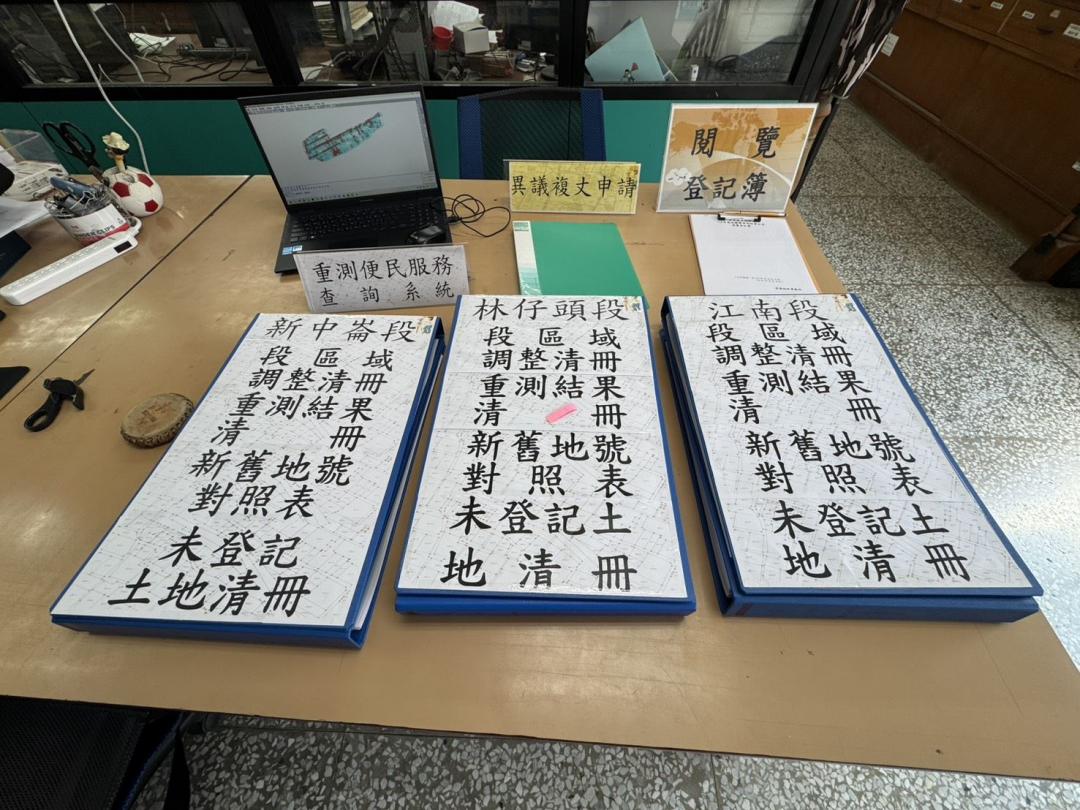 閱覽
登記簿
異議複丈申請
重測便民服務
查詢系統
新中崙段
段區域
調整清冊
重測結果
清冊
新舊地號
對照表
未登記
土地清冊
林仔頭段
段區域
調整清冊
重測結果
清冊
新舊地號
對照表
未登記土
地清冊
江南段
段區域
調整清冊
重測結果
清冊
新舊地號
對照表
未登記土
地清冊